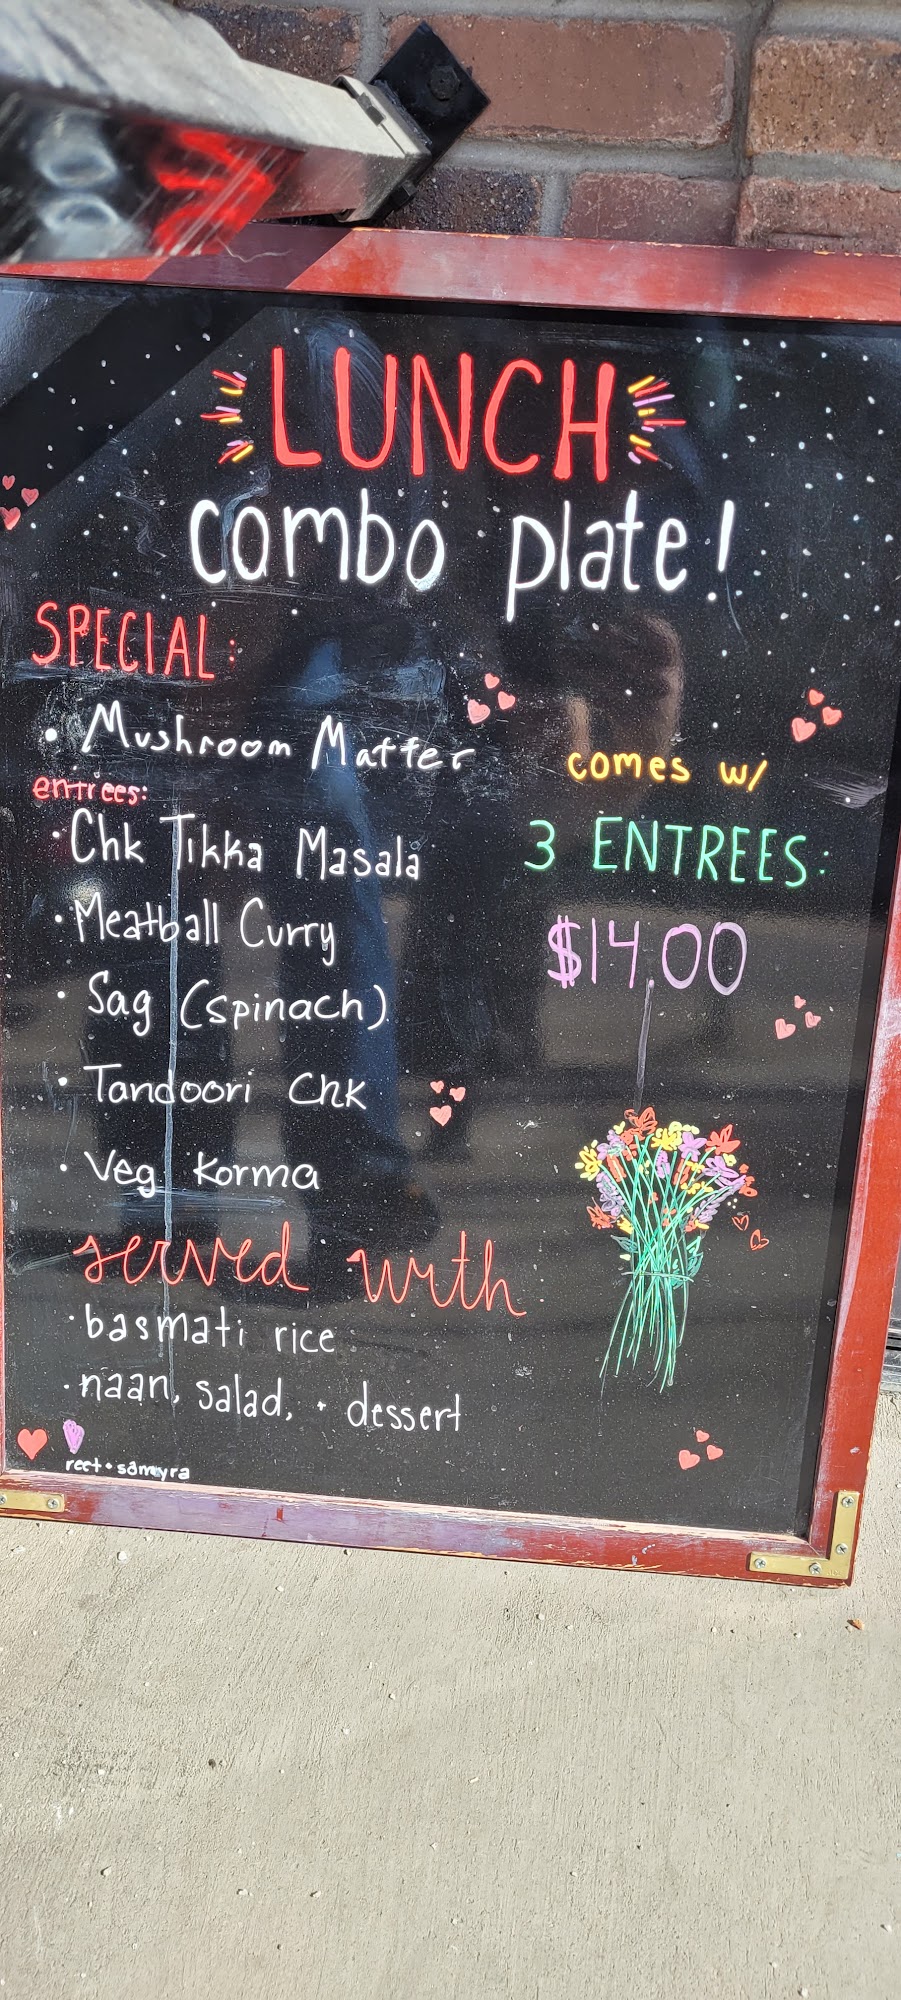 LUNCH
combo plate!
SPECIAL:
• Mushroom Matter
entrees:
• Chk Tikka Masala
• Meatball Curry
• Sag (spinach)
• Tandoori Chk
• Veg Korma
comes w/
3 ENTREES:
$14.00
served with
• basmati rice
• naan, salad, + dessert
reet + samyra